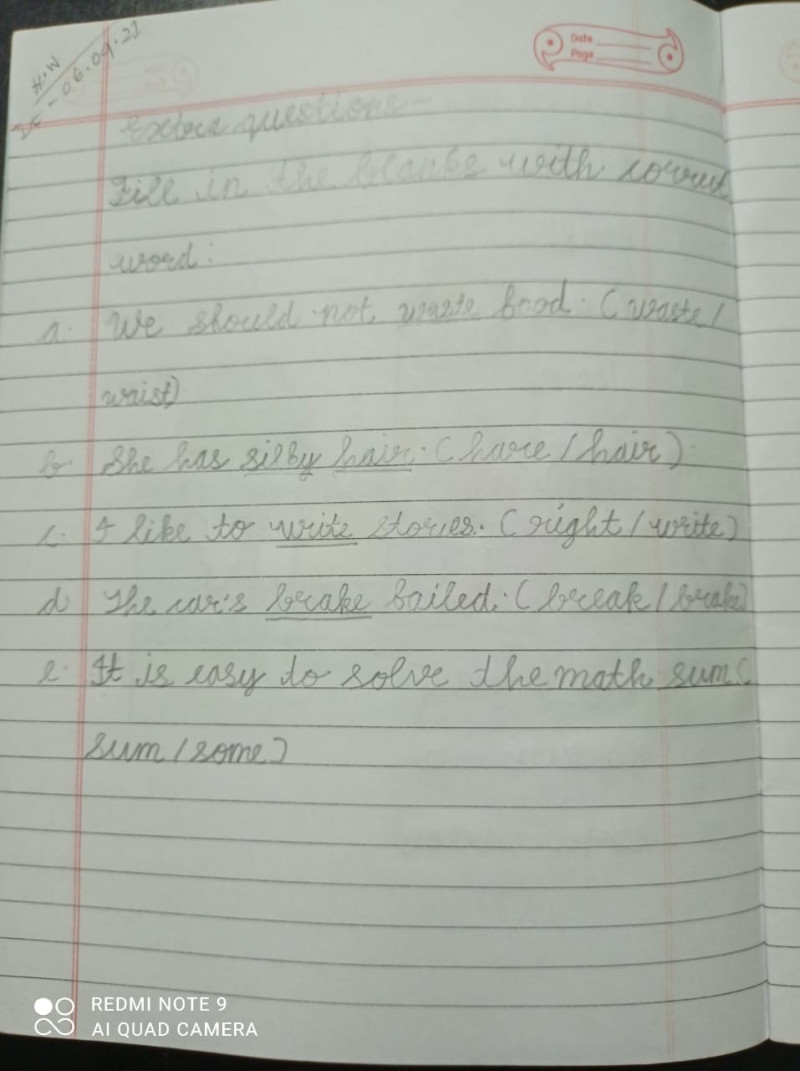 H.W
06.09.21
Date
Page
Extra questions-
Fill in the blanks with correct
word:
a. We should not waste food. (waste/
wrist)
b. She has silby hair. (hare / hair)
c. I like to write stories. (right / write)
d. The car's brake failed. (break / brake)
e. It is easy to solve the math sum (
sum / some)
REDMI NOTE 9
AI QUAD CAMERA